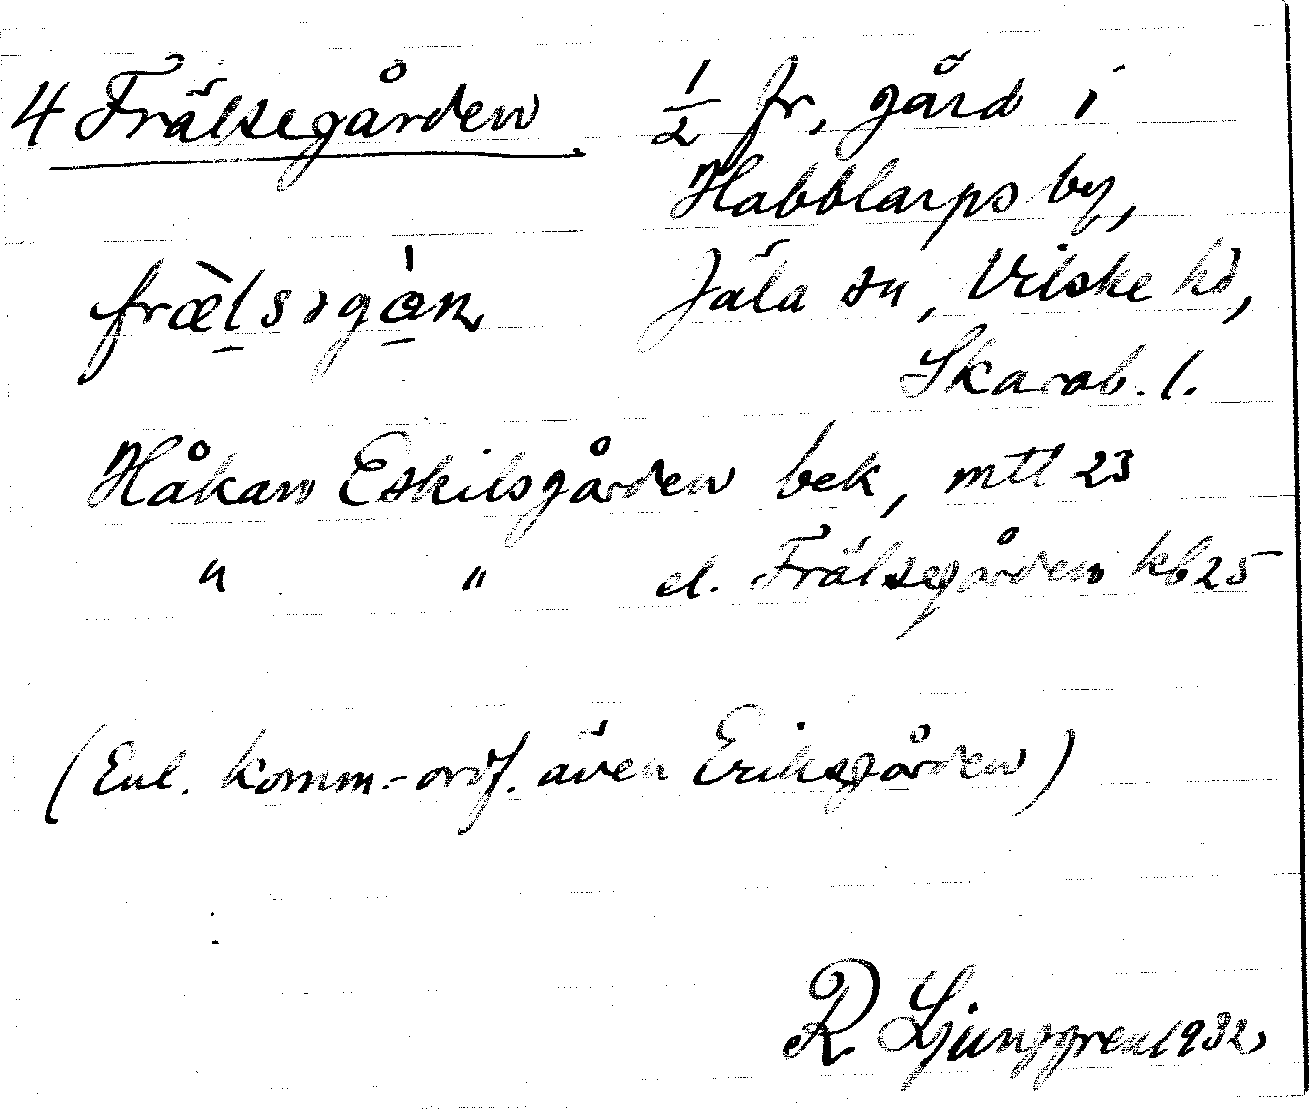 4 Frälsegården 1/2 fr, gård i
Habblarps by,
frælsəgån Jäla sn, Vilske hd,
Skarab. l.
Håkans Eskilsgården bek, mtl 23
" " el. Frälsegården kb 25
(Enl. komm.-ordf. även Eriksgården)
R Ljunggren 1932